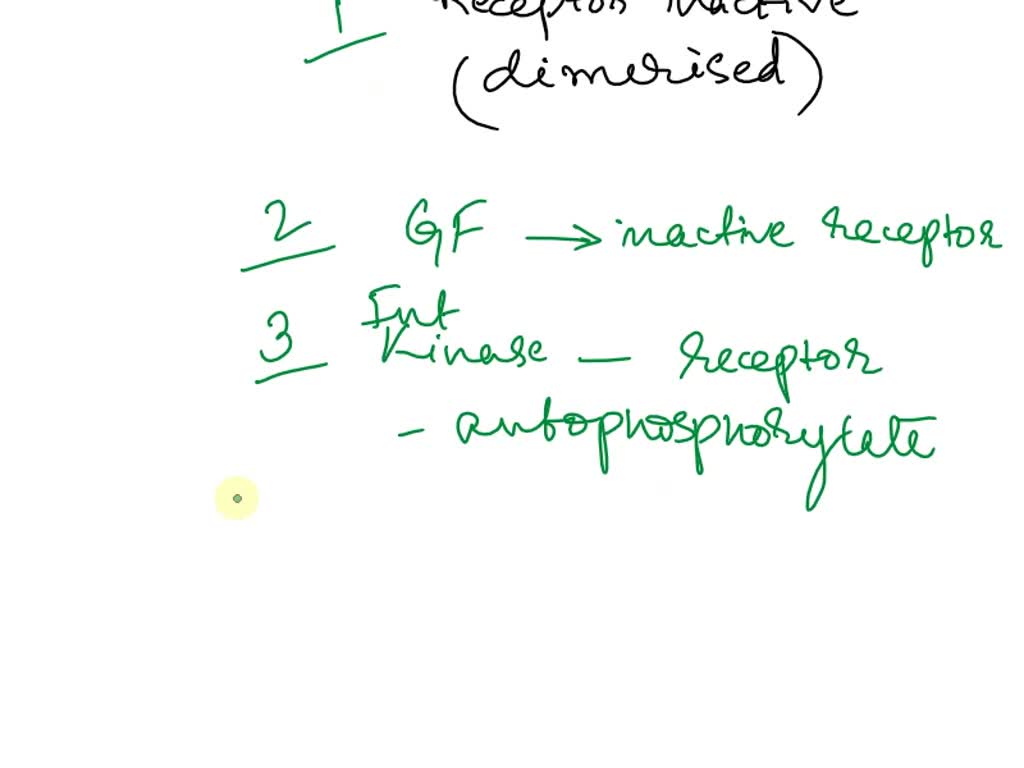 1 Receptor inactive
(dimerised)
2 GF → inactive receptor
3 Int
Kinase — receptor
- autophosphorylate